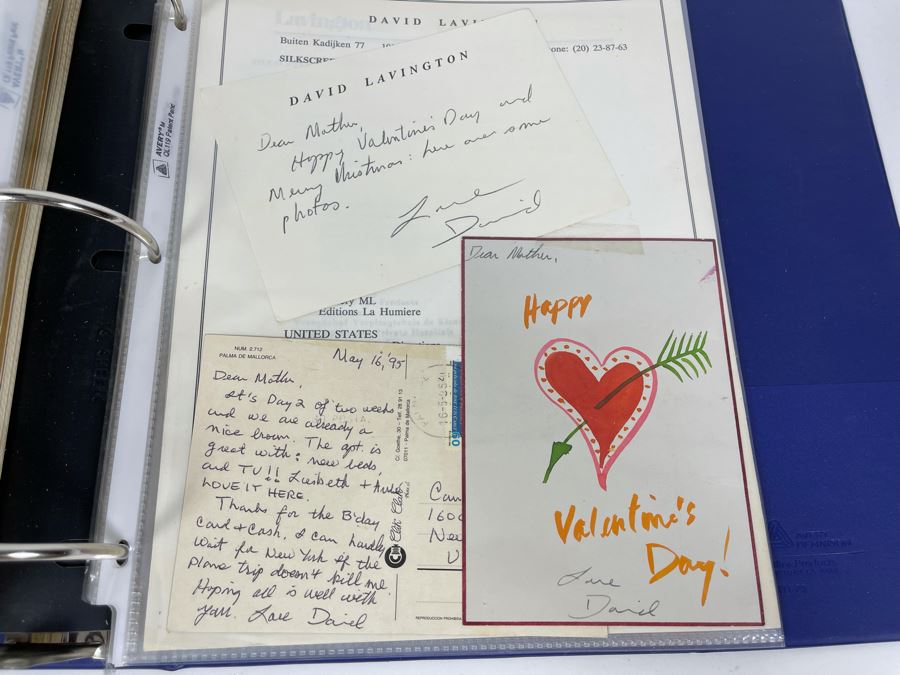 DAVID LAVINGTON
Buiten Kadijken 77
phone: (20) 23-87-63
SILKSCREE
DAVID LAVINGTON
Dear Mother,
Happy Valentine's Day and
Merry Christmas: here are some
photos.
Love
David
ML
Editions La Humiere
UNITED STATES
NUM. 2.712
PALMA DE MALLORCA
May 16, '95
Dear Mother,
It's Day 2 of two weeks
and we are already a
nice brown. The apt. is
great with: new beds,
and TV!! Liesbeth +
LOVE IT HERE.
Thanks for the B'day
Card + Cash. I can hardly
wait for New York if the
plane trip doesn't kill me.
Hoping all is well with
you. Love David
C/. Goethe, 30 – Telf. 28 91 13
07011 – Palma de Mallorca
Clik Clak
1600
Ne
U
REPRODUCCION PROHIBIDA
Dear Mother,
Happy
Valentine's
Day!
Love
David
AVERY